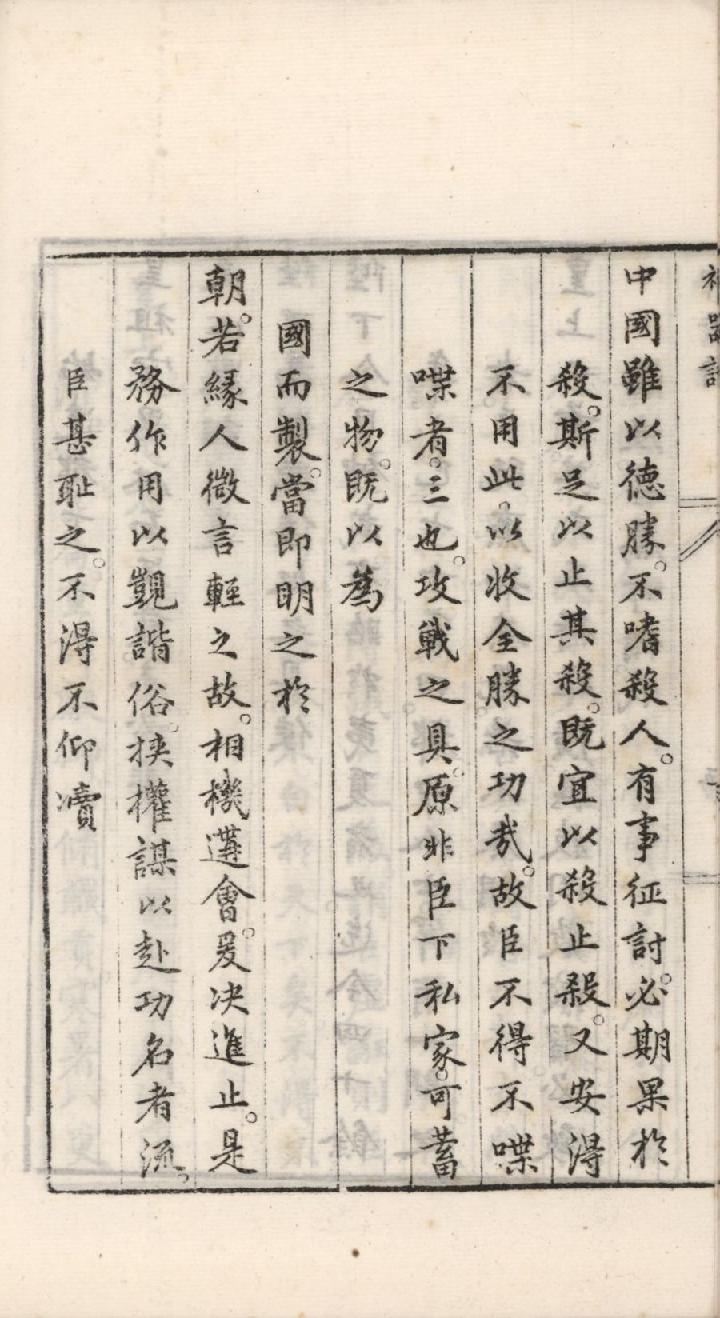 中國雖以德勝。不嗜殺人。有事征討。必期果於
殺。斯足以止其殺。既宜以殺止殺。又安得
不用此。以收全勝之功哉。故臣不得不喋
喋者。三也。攻戰之具。原非臣下私家。可蓄
之物。既以為
國而製。當即明之於
朝。若緣人微言輕之故。相機遘會。爰决進止。是
務作用以覬諧俗。挾權謀以赴功名者流。
臣甚恥之。不得不仰瀆